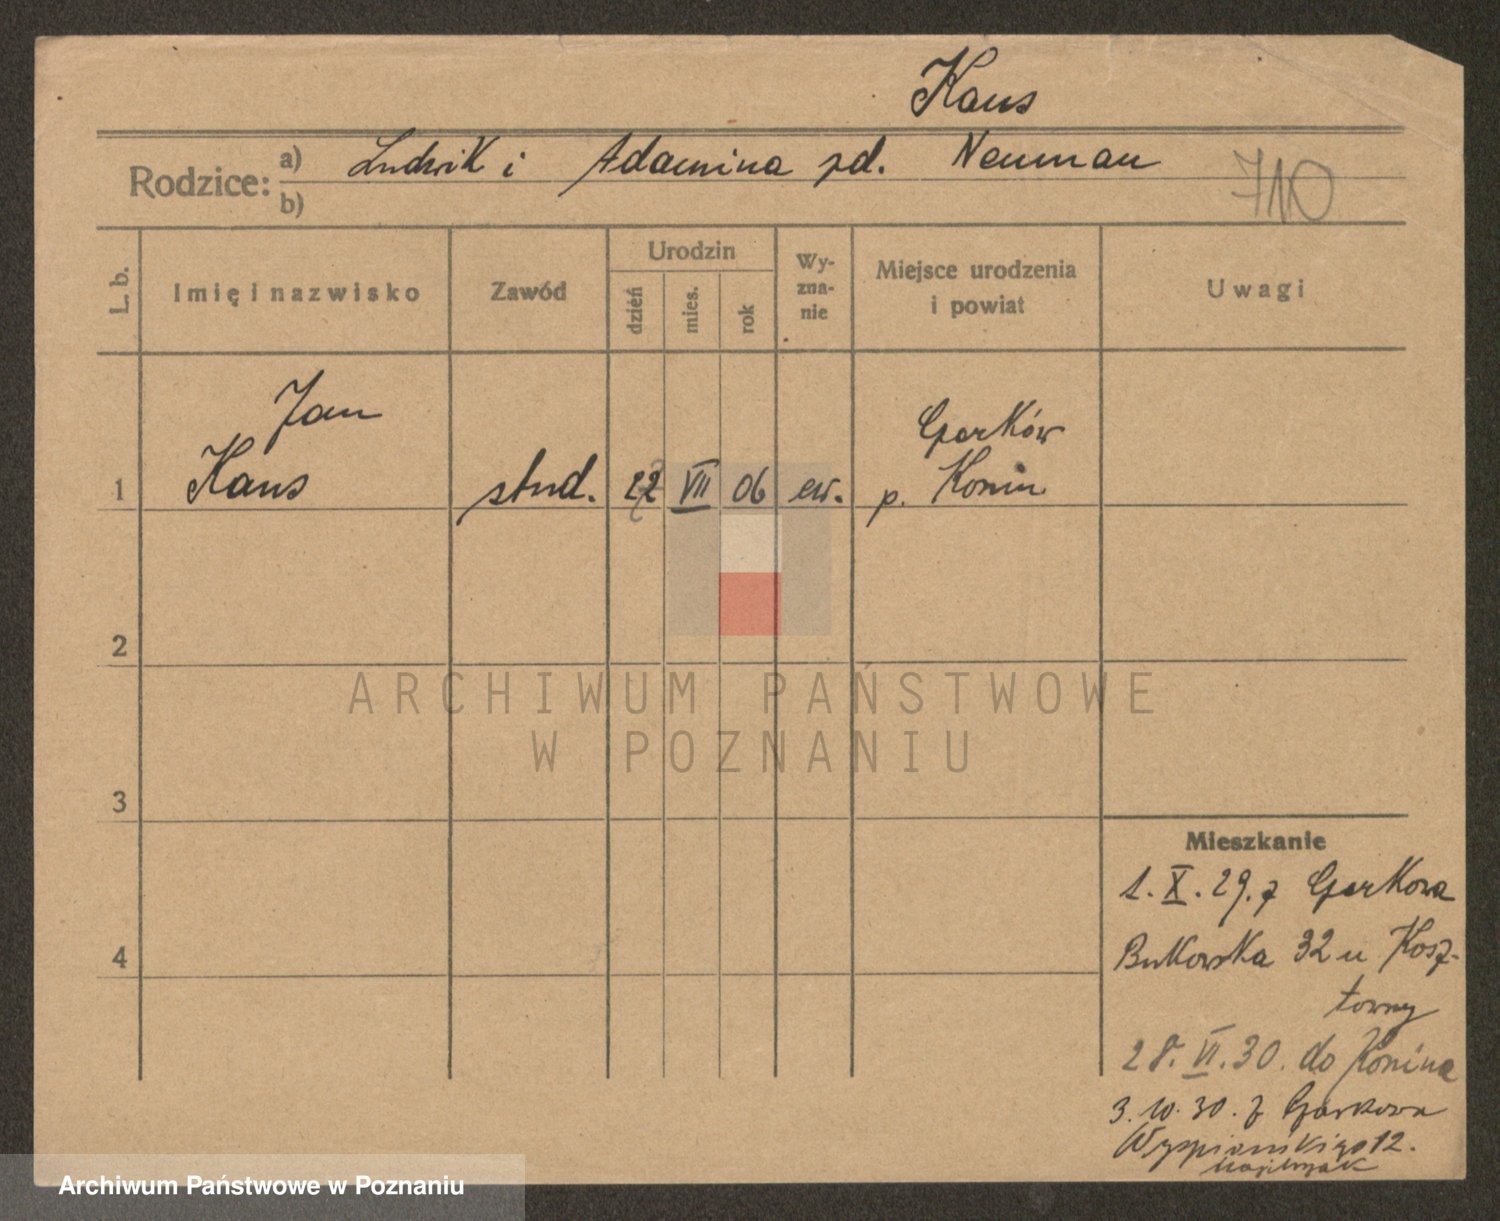 Kaus
Rodzice: a) Ludwik i Adamina zd. Neuman
b)
710
L. b.
Imię i nazwisko
Zawód
Urodzin
dzień
mies.
rok
Wy-
zna-
nie
Miejsce urodzenia
i powiat
Uwagi
Jan
1 Kaus stud. 22 VII 06 ew. p. Konin
2
3
4
ARCHIWUM PAŃSTWOWE
W POZNANIU
Mieszkanie
1. X. 29. z
Bukowska 32 u Kosz-
towny
28. VI. 30. do Konina
3. 10. 30. z
Wyspiańskiego 12.
Archiwum Państwowe w Poznaniu